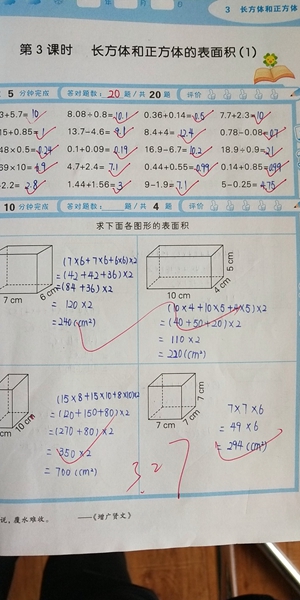 3 长方体和正方体
第3课时 长方体和正方体的表面积(1)
5 分钟完成 答对题数: 20 题/共 20 题 评价
3+5.7= 10 8.08+0.8= 10.1 0.36+0.14= 0.5 7.7+2.3= 10
15+0.85= 1 13.7-4.6= 9.1 8.4+4= 12.4 0.78-0.08= 0.7
48×0.5= 0.24 0.1+0.09= 0.19 16.9-6.7= 10.2 18.9+0.9= 21
69×10= 6.9 4.7+2.4= 7.1 0.44+0.55= 0.99 0.14+0.85= 0.99
2.2= 2.8 1.44+1.56= 3 9-1.9= 7.1 5-0.25= 4.75
10 分钟完成 答对题数: 题/共 4 题 评价
求下面各图形的表面积
7 cm 6 cm
(7×6+7×6+6×6)×2
=(42+42+36)×2
=(84+36)×2
= 120×2
=240(cm²)
10 cm 4 cm 5 cm
(10×4+10×5+4×5)×2
=(40+50+20)×2
= 110×2
= 220(cm²)
cm 10 cm
(15×8+15×10+8×10)×2
=(120+150+80)×2
=(270+80)×2
= 350×2
= 700(cm²)
7 cm 7 cm 7 cm
7×7×6
= 49×6
= 294(cm²)
3.27
说,覆水难收。 ——《增广贤文》